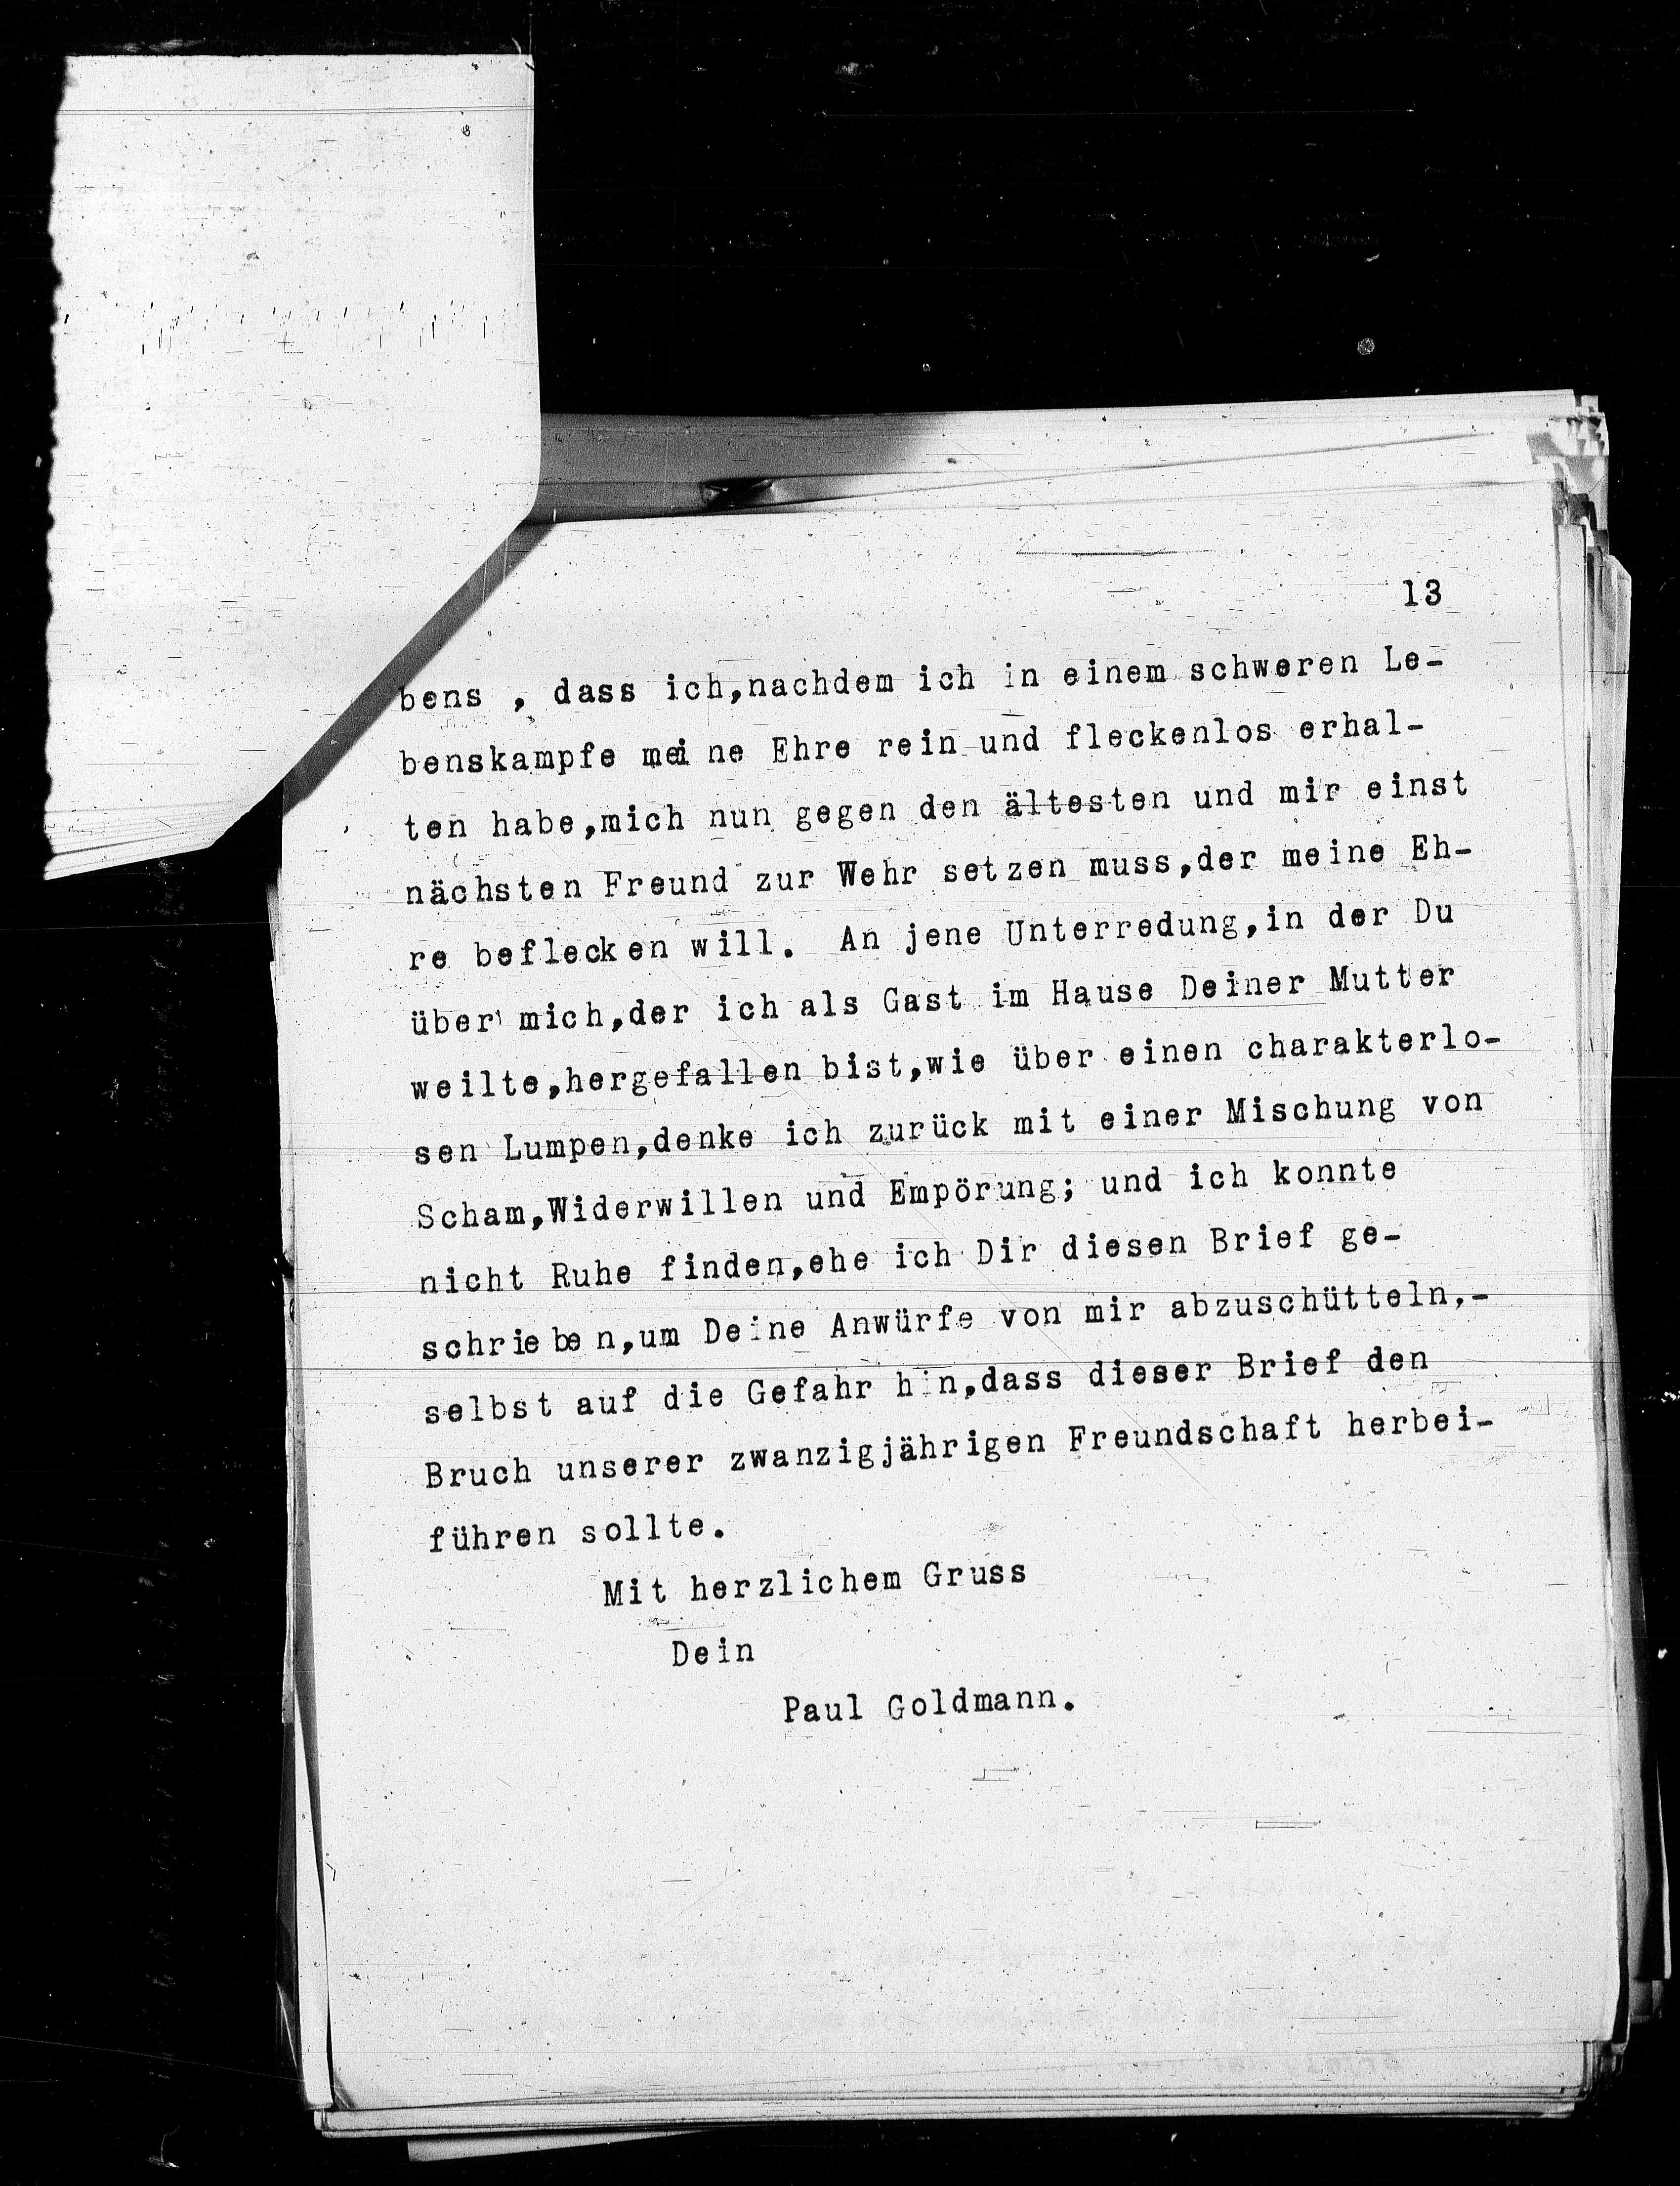 13
bens , dass ich,nachdem ich in einem schweren Le-
benskampfe meine Ehre rein und fleckenlos erhal-
ten habe,mich nun gegen den ältesten und mir einst
nächsten Freund zur Wehr setzen muss,der meine Eh-
re beflecken will. An jene Unterredung,in der Du
über mich,der ich als Gast im Hause Deiner Mutter
weilte,hergefallen bist,wie über einen charakterlo-
sen Lumpen,denke ich zurück mit einer Mischung von
Scham,Widerwillen und Empörung; und ich konnte
nicht Ruhe finden,ehe ich Dir diesen Brief ge-
schrieben,um Deine Anwürfe von mir abzuschütteln,-
selbst auf die Gefahr hin,dass dieser Brief den
Bruch unserer zwanzigjährigen Freundschaft herbei-
führen sollte.
Mit herzlichem Gruss
Dein
Paul Goldmann.